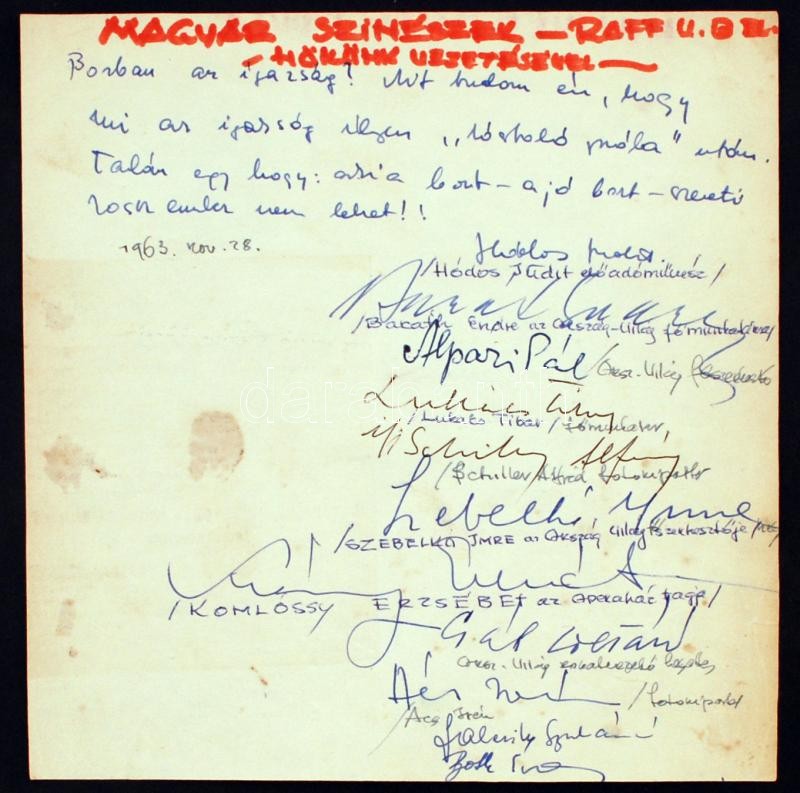 MAGYAR SZINÉSZEK — RAFF U. B EL.
— NÖKÜNK VEZETÉSÉVEL —
Borban az igazság! Mit tudom én, hogy
mi az igazság ilyen „kóstoló próba" után.
Talán egy hogy: aki a bort – a jó bort – szereti
rossz ember nem lehet!!
1963. nov. 28.
Hódos Judit
/Hódos Judit előadóművész/
/Baráth Endre az Ország-Világ főmunkatársa/
Alpári Pál /Orsz. Világ
Lukács Tibor
/Lukács Tibor/ főmunkatár
Schiller Alfréd
/Schiller Alfréd fotoriporter
Szebelkó Imre
/SZEBELKÓ IMRE az Ország Világ főszerkesztője/
/KOMLÓSSY ERZSÉBET az Operaház tagja/
Gál Zoltán
Orsz. Világ rovatvezető
Ács Irén /fotoriporter/
/Ács Irén